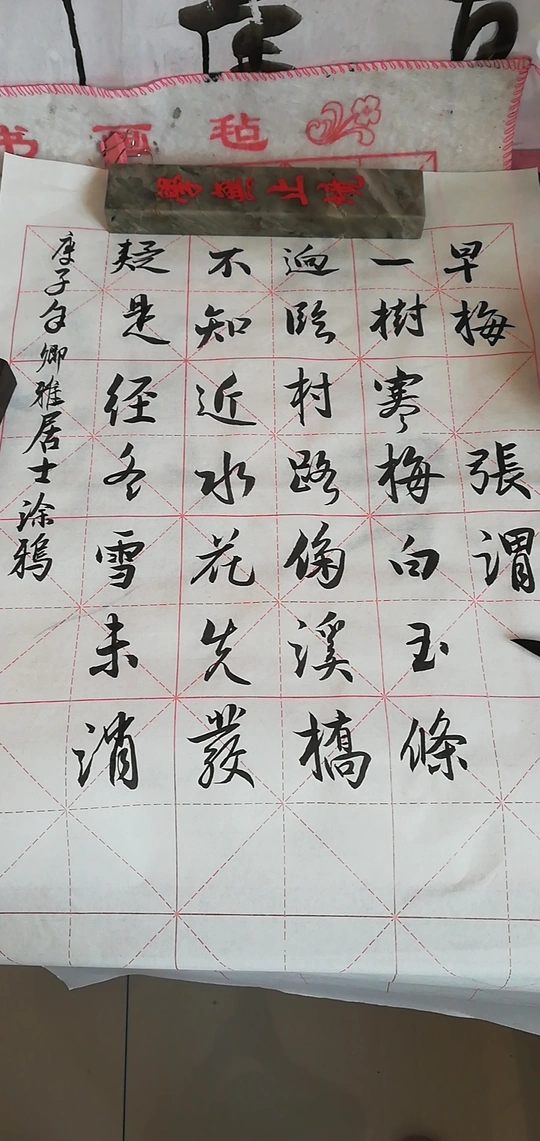 书画毡
學無止境
早梅 張謂
一樹寒梅白玉條
逈臨村路傍溪橋
不知近水花先發
疑是经冬雪未消
庚子年卿雅居士涂鴉